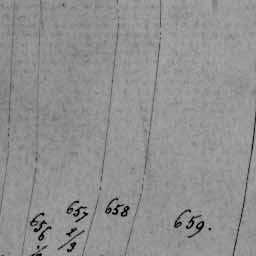 656
657
658
659.